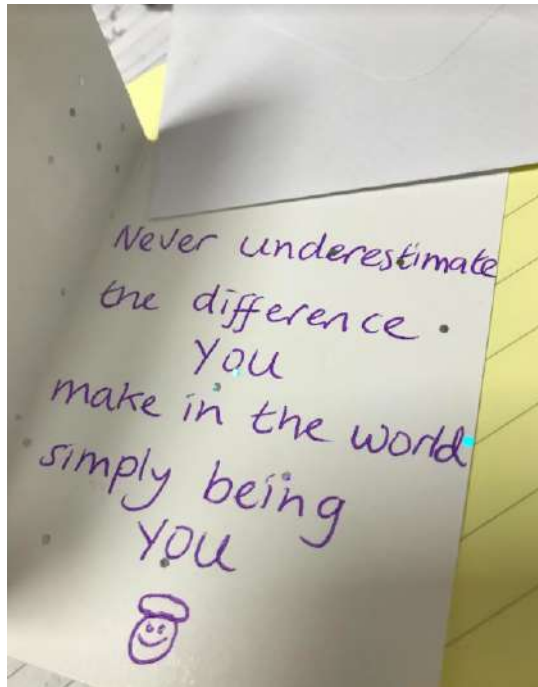 Never underestimate
the difference
YOU
make in the world
simply being
YOU